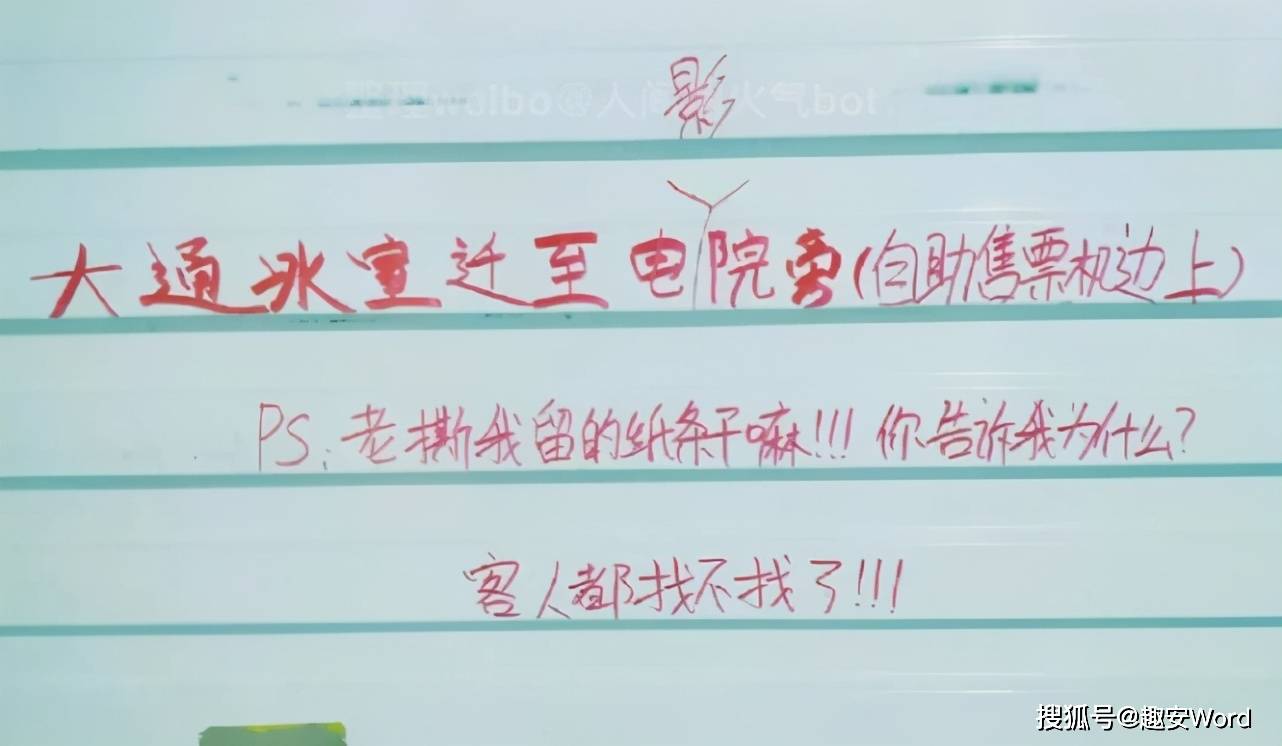 影
大通冰室迁至电院旁(自助售票机边上)
PS:老撕我留的纸条干嘛!!!你告诉我为什么?
客人都找不找了!!!
整理weibo@人间 火气bot
搜狐号@趣安Word